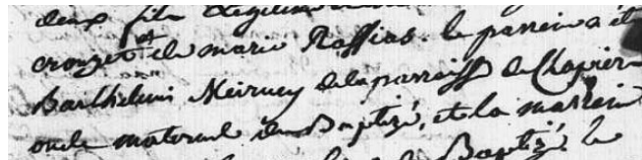 deux fils légitime
crouzet et de marie Raffias. le parrein a été
Barthelemi Meiruey de la parroisse de Chapier
oncle maternel du Baptizé, et la marrein
Baptizé. le